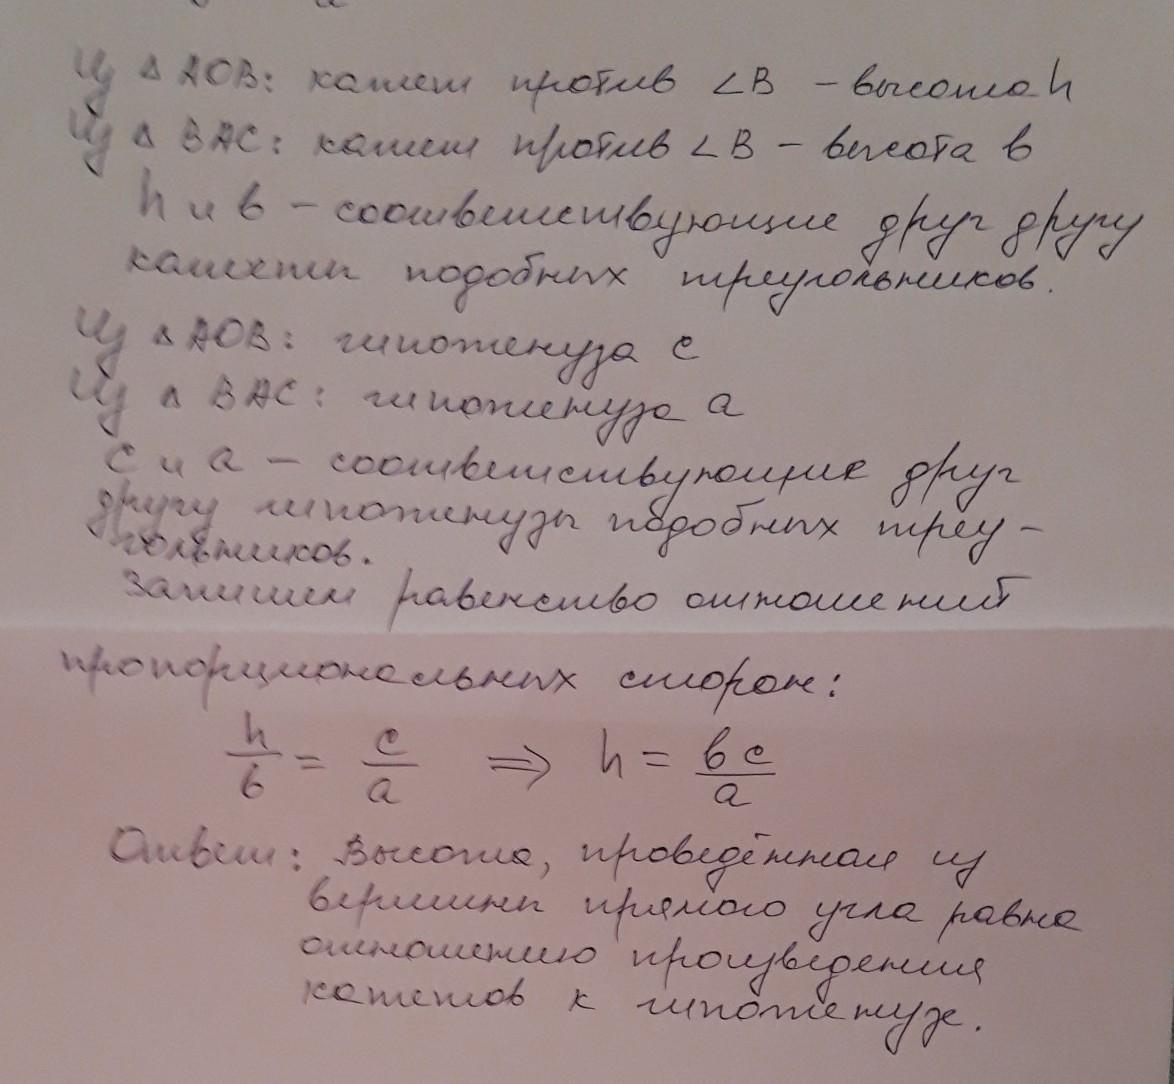 Из △ AOB: катет против ∠B – высота h
Из △ BAC: катет против ∠B – высота b
h и b – соответствующие друг другу
катеты подобных треугольников.
Из △ AOB: гипотенуза c
Из △ BAC: гипотенуза a
c и a – соответствующие друг
другу гипотенузы подобных треу-
гольников.
Запишем равенство отношений
пропорциональных сторон:
h/b = c/a ⇒ h = bc/a
Ответ: Высота, проведённая из
вершины прямого угла равна
отношению произведения
катетов к гипотенузе.